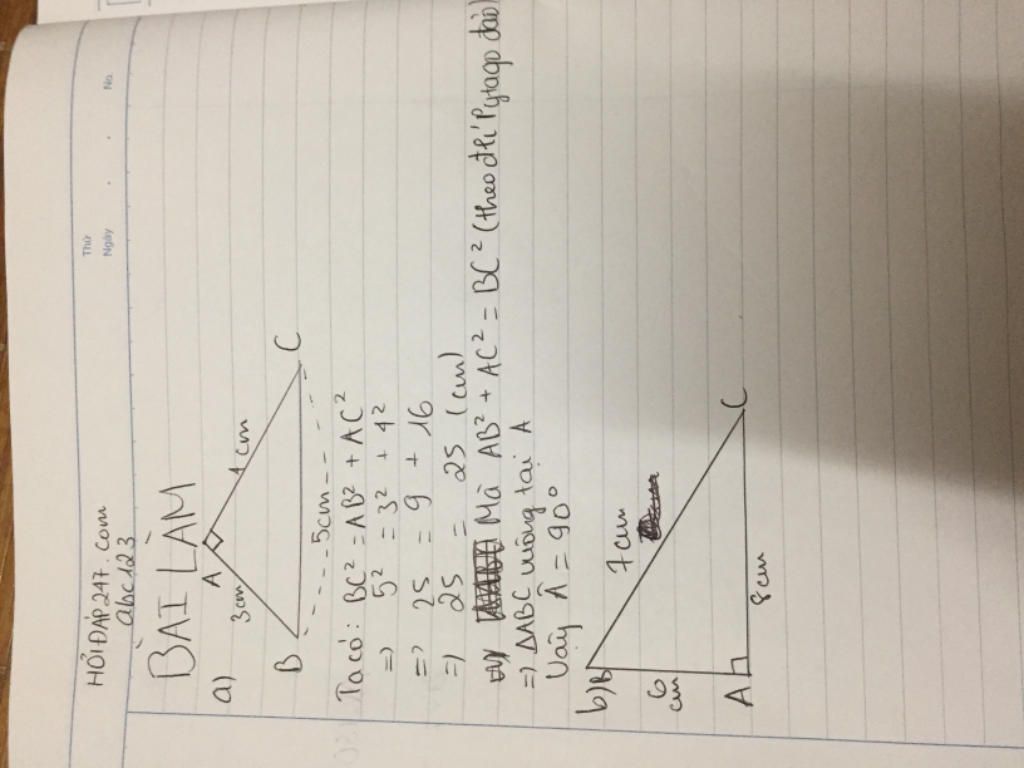 Thứ
Ngày
No.
HỎIĐÁP247.com
abc123
BÀI LÀM
a)
A
3cm
4cm
B
C
5cm
Ta có: BC² = AB² + AC²
=> 5² = 3² + 4²
=> 25 = 9 + 16
=> 25 = 25 (cm)
Mà AB² + AC² = BC² (theo đlí Pytago đảo)
=> ΔABC vuông tại A
Vậy Â = 90°
b)
B
7cm
6
cm
A
8cm
C